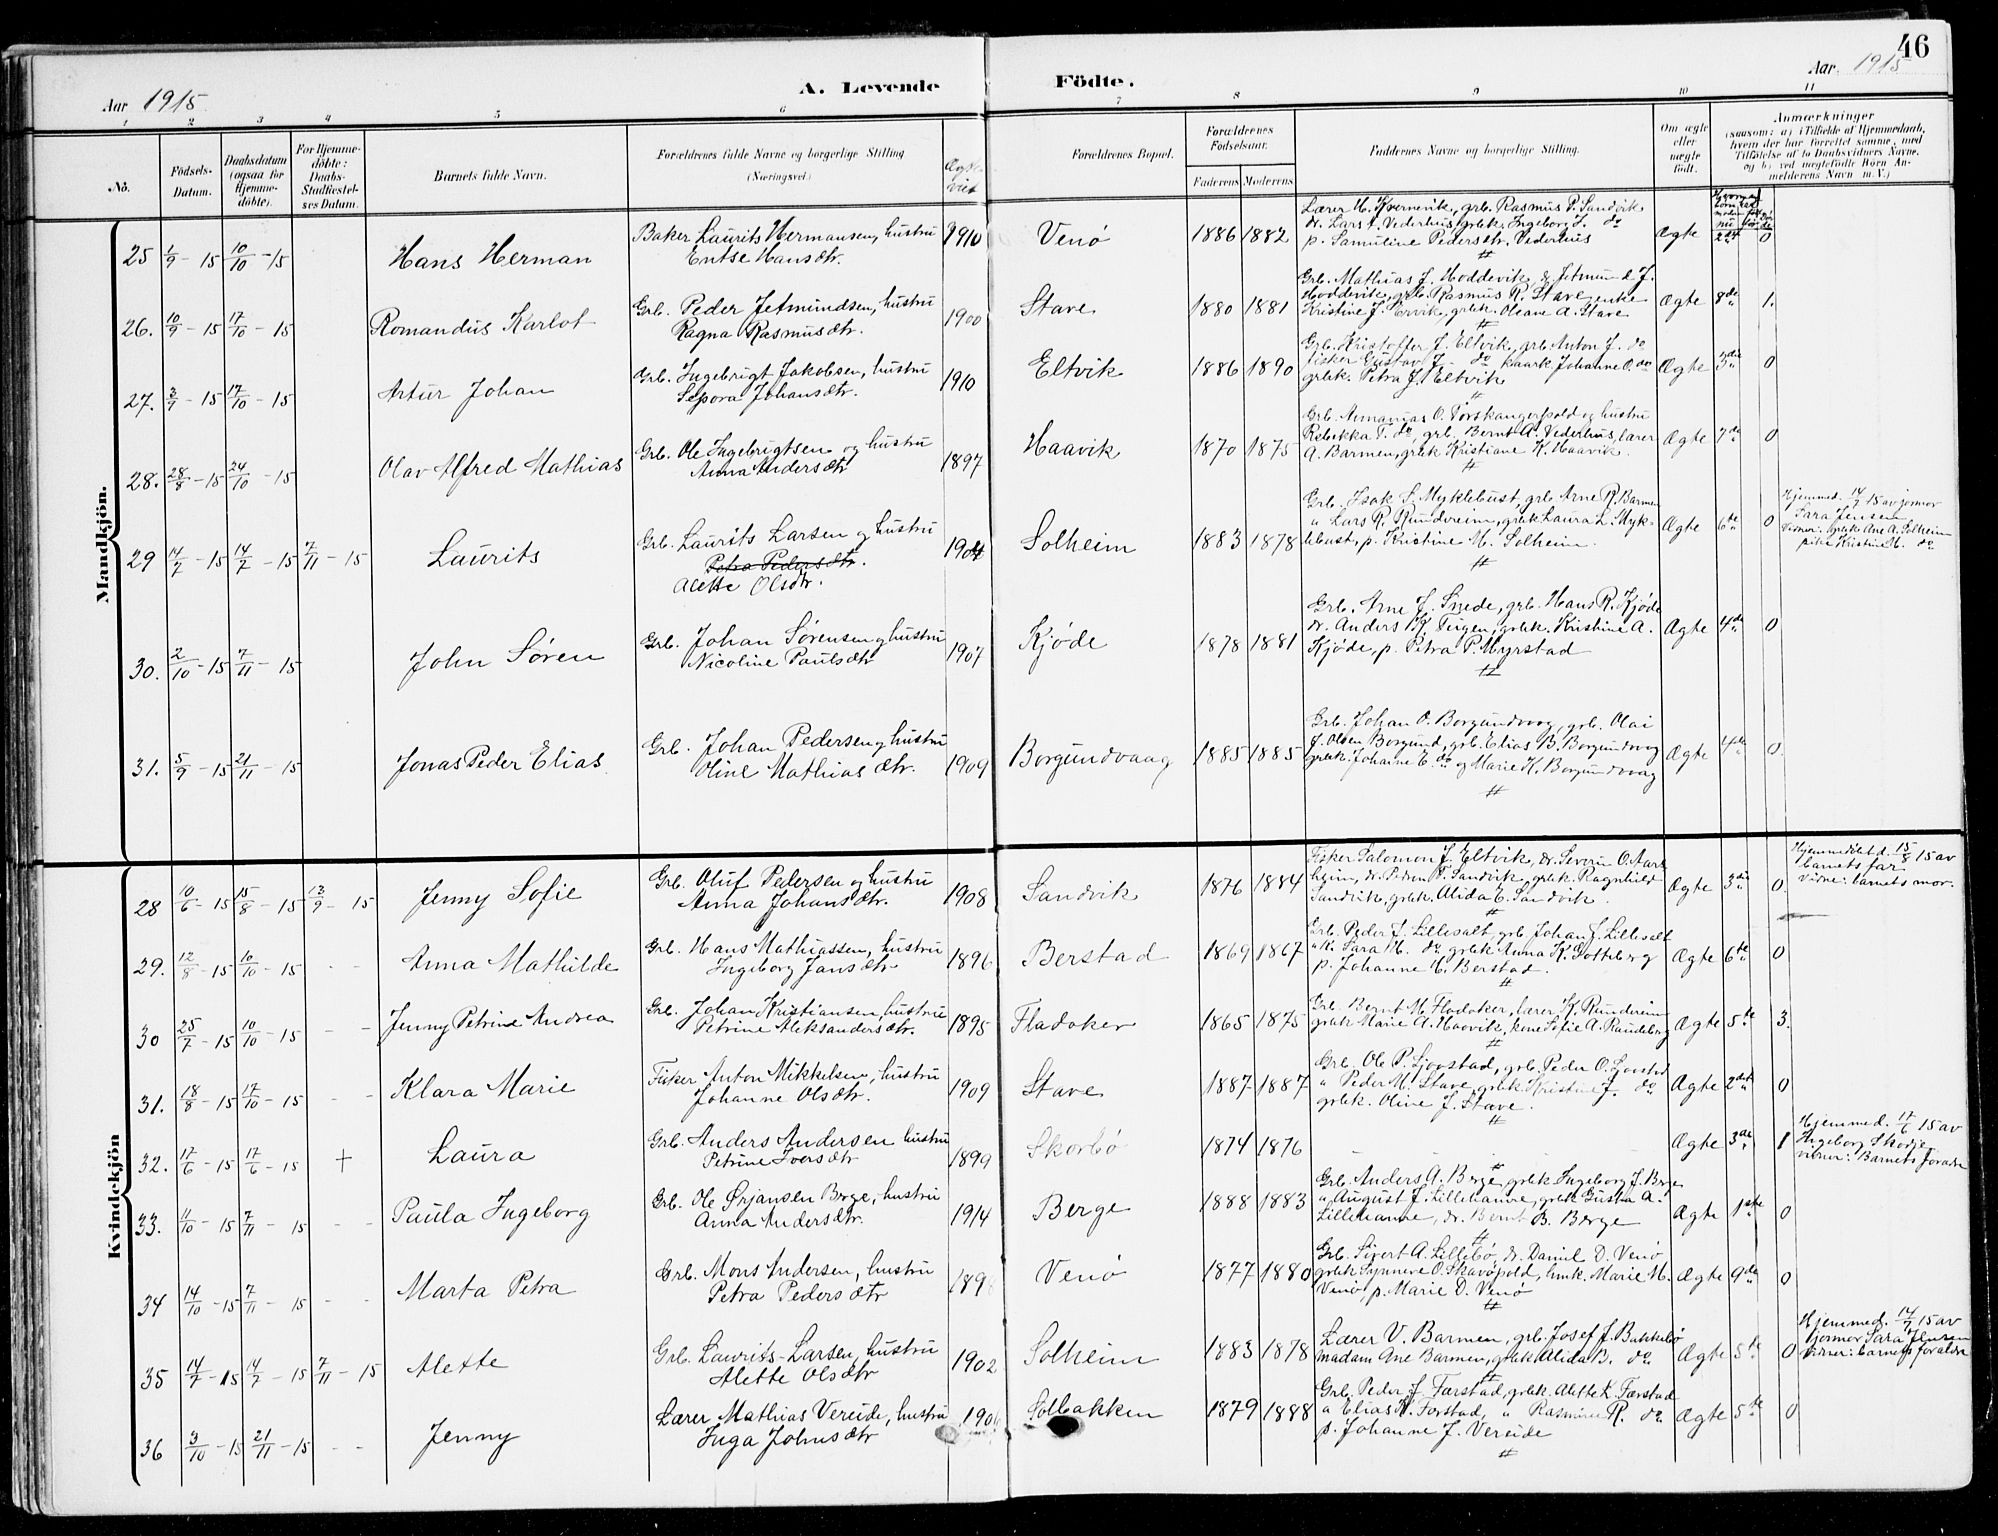 46
Aar 1915
A. Levende
Födte.
Aar 1915
1 2 3 4 5 6 7 8 9 10 11
No.
Födsels-Datum.
Daabsdatum (ogsaa for Hjemme-döbte).
For Hjemme-döbte: Daabs-Stadfæstel-ses Datum.
Barnets fulde Navn.
Forældrenes fulde Navne og borgerlige Stilling (Næringsvei)
Forældrenes Bopæl.
Forældrenes Födselsaar.
Faderens Moderens
Faddernes Navne og borgerlige Stilling.
Om ægte eller uægte födt.
Anmærkninger
(saasom: a) i Tilfælde af Hjemmedaab, hvem der har forrettet samme, med Tilföielse af to Daabsvidners Navne, og b) ved uægtefödte Börn An-melderens Navn m. V.)
Mandkjön.
25 1/9 - 15 10/10 - 15 Hans Herman
Baker Laurits Hermansen, hustru
Entse Hansdtr. 1910
Venö 1886 1882
Lærer M. Kvernevik, grb. Rasmus P. Sandvik
dr. Lars t. Vederhus, grbek. Ingeborg J. do
p. Samuline Pedersdtr. Vederhus
Ægte 2det 0
26. 10/9 - 15 17/10 - 15 Romandus Karlot
Grb. Peder Jetmundsen, hustru
Ragna Rasmusdtr. 1900
Stave 1880 1881
Grb. Mathias J. Hoddevik, dr Jetmund J.
Hoddevik, grb. Rasmus R. Stave, enke
Kristine J. Ervik, grbek. Oleane A. Stave
Ægte 8de 1.
27. 3/9 - 15 17/10 - 15 Artur Johan
Grb. Ingebrigt Jakobsen, hustru
Sepora Johansdtr. 1910
Eltvik 1886 1890
Grb. Kristoffer J. Eltvik, grb Anton J. do
fisker Gustav J. do kaark Johanne O. do
grbk. Petra J. Eltvik
Ægte 3die 0
28. 28/8 - 15 24/10 - 15 Olav Alfred Mathias
Grb. Ole Ingebrigtsen og hustru
Anna Andersdtr 1897
Haavik 1870 1875
Grb. Annanias O. Torskangerpold og hustru
Rebekka T. do, grb. Bernt A. Vederhus, lærer
A. Barmen, grbek Kristiane K. Haavik.
Ægte 7de 0
29 14/7 - 15 14/7 - 15 7/11 - 15 Laurits
Grb. Laurits Larsen og hustru
Petra Pedersdtr.
Alette Olsdtr. 1904
Solheim 1883 1878
Grb. Isak S. Myklebust, grb. Arne R. Barmen
" Lars R. Rundreim, grbek Laura L. Myk-
lebust, p. Kristine M. Solheim.
Ægte 6te 0
Hjemmed. 14/7 15 av jormor
Sara Jensen
Vidner: grbek. Ane A. Solheim
pike Kristine M. do
30. 2/10 - 15 7/11 - 15 John Sören
Grb. Johan Sörensen og hustru
Nicoline Paulsdtr 1907
Kjöde 1878 1881
Grb. Arne J. Snede, grb. Hans R. Kjöde
dr. Anders K. Tungen, grbek. Kristine A.
Kjöde, p. Petra P. Myrstad
Ægte 4de 0
31. 5/9 - 15 21/11 - 15 Jonas Peder Elias
Grb. Johan Pedersen og hustru
Oline Mathiasdtr. 1909
Borgundvaag 1885 1885
Grb. Johan O. Borgundvaag, grb. Olai
J. Olsen Borgund, grb. Elias B. Borgundvaag
grbek. Johanne E. do og Marie K. Borgundvaag
Ægte 4de 0.
Kvindekjön
28 10/6 - 15 15/8 - 15 13/9 - 15 Jenny Sofie
Grb. Oluf Pedersen og hustru
Anna Johansdtr. 1908
Sandvik 1876 1884
Fisker Salomon J. Eltvik, dr. Severin O. Aars
heim, dr. Peder T. Sandvik, grbek. Ragnhild
Sandvik, grbek. Alida E. Sandvik.
Ægte 3die 0.
Hjemmedöbt d. 15/8 15 av
barnets far
Vidne: barnets mor.
29. 12/8 - 15 10/10 - 15 Anna Mathilde
Grb. Hans Mathiassen, hustru
Ingeborg Jansdtr 1896
Berstad 1869 1867
Grb. Peder J. Lillesalt, grb Johan J. Lillesalt
k. Sara M. do, grbek Anna K. Totteberg
p. Johanne M. Berstad.
Ægte 6te 0
30 25/7 - 15 10/10 - 15 Jenny Petrine Andrea
Grb. Johan Kristiansen, hustru
Petrine Aleksandersdtr. 1895
Fladöker 1865 1875
Grb. Bernt M. Fladöker, lærer K. Rundereim
grbek Marie A. Haavik, kone Sofie A. Raudeberg
Ægte 5te 3.
31. 18/8 - 15 17/10 - 15 Klara Marie
Fisker Anton Mikkelsen, hustru
Johanne Olsdtr. 1909
Stave 1887 1887
Grb. Ole P. Sjovstad, grb. Peder O. Sjovstad
" Peder M. Stave, grbek Kristine J. do
grbek. Oline J. Stave.
Ægte 2det 0
32. 17/6 - 15 17/6 - 15 + Laura
Grb. Anders Andersen hustru
Petrine Iversdtr 1899
Skorbö 1874 1876
Ægte 3die 1
Hjemmed. 17/6 15 av
Ingeborg Skorje
vidner: Barnets forældre
33. 11/10 - 15 7/11 - 15 Paula Ingeborg
Grb. Ole Örjansen Berge, hustru
Anna Andersdtr. 1914
Berge 1888 1883
Grb. Anders A. Berge, grbek Ingeborg J. Berge
" August J. Lillehamre, grbek Gusta A.
Lillehamre, dr. Bernt B. Berge
Ægte 1ste 0
34 14/10 - 15 7/11 - 15 Marta Petra
Grb. Mons Andersen, hustru
Petra Pedersdtr 189
Venö 1877 1880
Grb. Sivert A. Lillebö, dr. Daniel D. Venö
grbek Synneve O. Skavöpold, hmk. Marie M.
Venö, p. Marie D. Venö
Ægte 9de 0
35 14/7 - 15 14/7 - 15 7/11 - 15 Alette
Grb. Laurits Larsen, hustru
Alette Olsdtr 1902
Solheim 1883 1878
Lærer V. Barmen, grb. Josef J. Bakkebö
madam Ane Barmen, grbek Alida B. do.
Ægte 5te 0
Hjemmed. 14/7 15 av
jormor Sara Jensen
vidner: barnets forældre
36 3/10 - 15 21/11 - 15 Jenny
Lærer Mathias Vereide, hustru
Inga Johnsdtr 190
Solbakken 1879 1888
Grb. Peder J. Farstad, grbek. Alette K. Farstad
" Elias K. Farstad, " Rasmine R. do.
p. Johanne J. Vereide
Ægte 5te 0